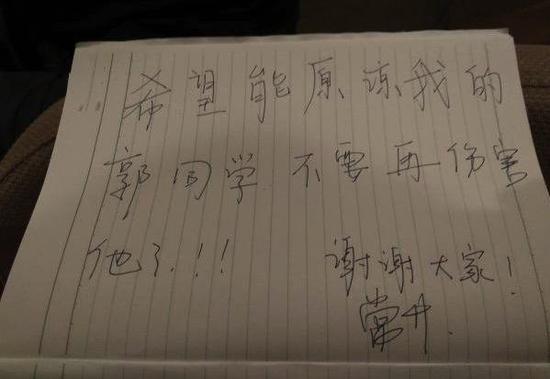 希望能原谅我的
郭同学不要再伤害
他了.!!
谢谢大家!
常升.